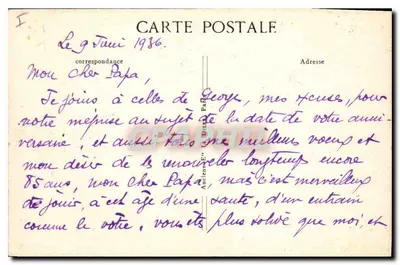 I
CARTE POSTALE
Le 9 Juin 1936.
correspondance
Adresse
Mon cher Papa,
Je joins à celles de George, mes excuses, pour
notre méprise au sujet de la date de votre anni-
versaire, et aussi tous mes meilleurs voeux et
mon désir de le renouveler longtemps encore
85 ans, mon cher Papa, mais c'est merveilleux
de jouir, à cet âge d'une santé, d'un entrain
comme le vôtre, vous êtes plus solide que moi, et